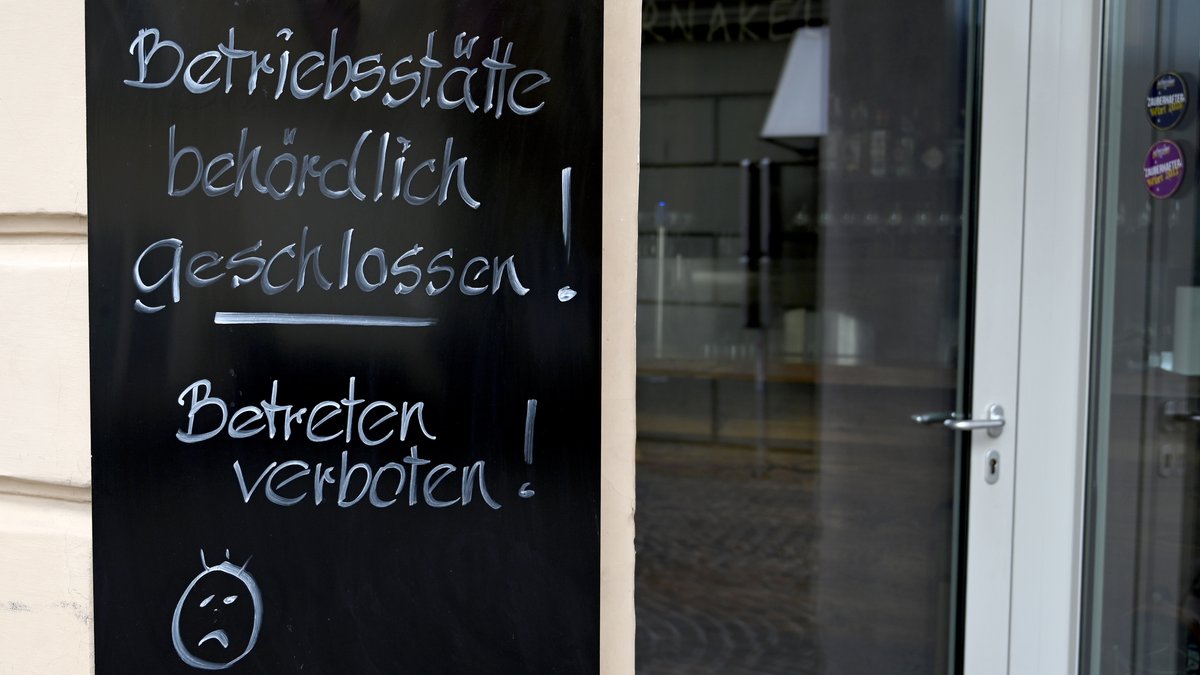 Betriebsstätte
behördlich
geschlossen!
Betreten
verboten!
ZAUBERHAFTER
ZAUBERHAFTER